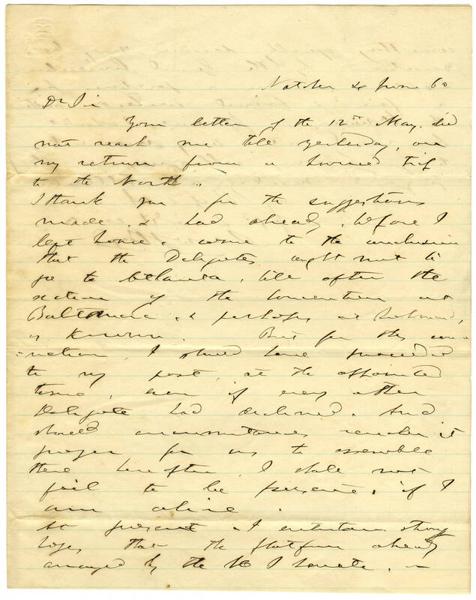 Natchez 4 June 60
Dr Sir
Your letter of the 12th May did
not reach me till yesterday, on
my return from a hurried trip
to the North.
I thank you for the suggestions
made. I had already, before I
left home, come to the conclusion
that the Delegates ought not to
go to till after the
action of the Convention at
Baltimore, & perhaps at Richmond,
is known. But for this
I should have proceeded
to my post, at the appointed
time, even if every other
Delegate had declined. And
should circumstances render it
proper for us to assemble
there hereafter, I shall not
fail to be present, if I
am alive.
At present I entertain strong
hopes that the platform already
arranged by the U S Senate,